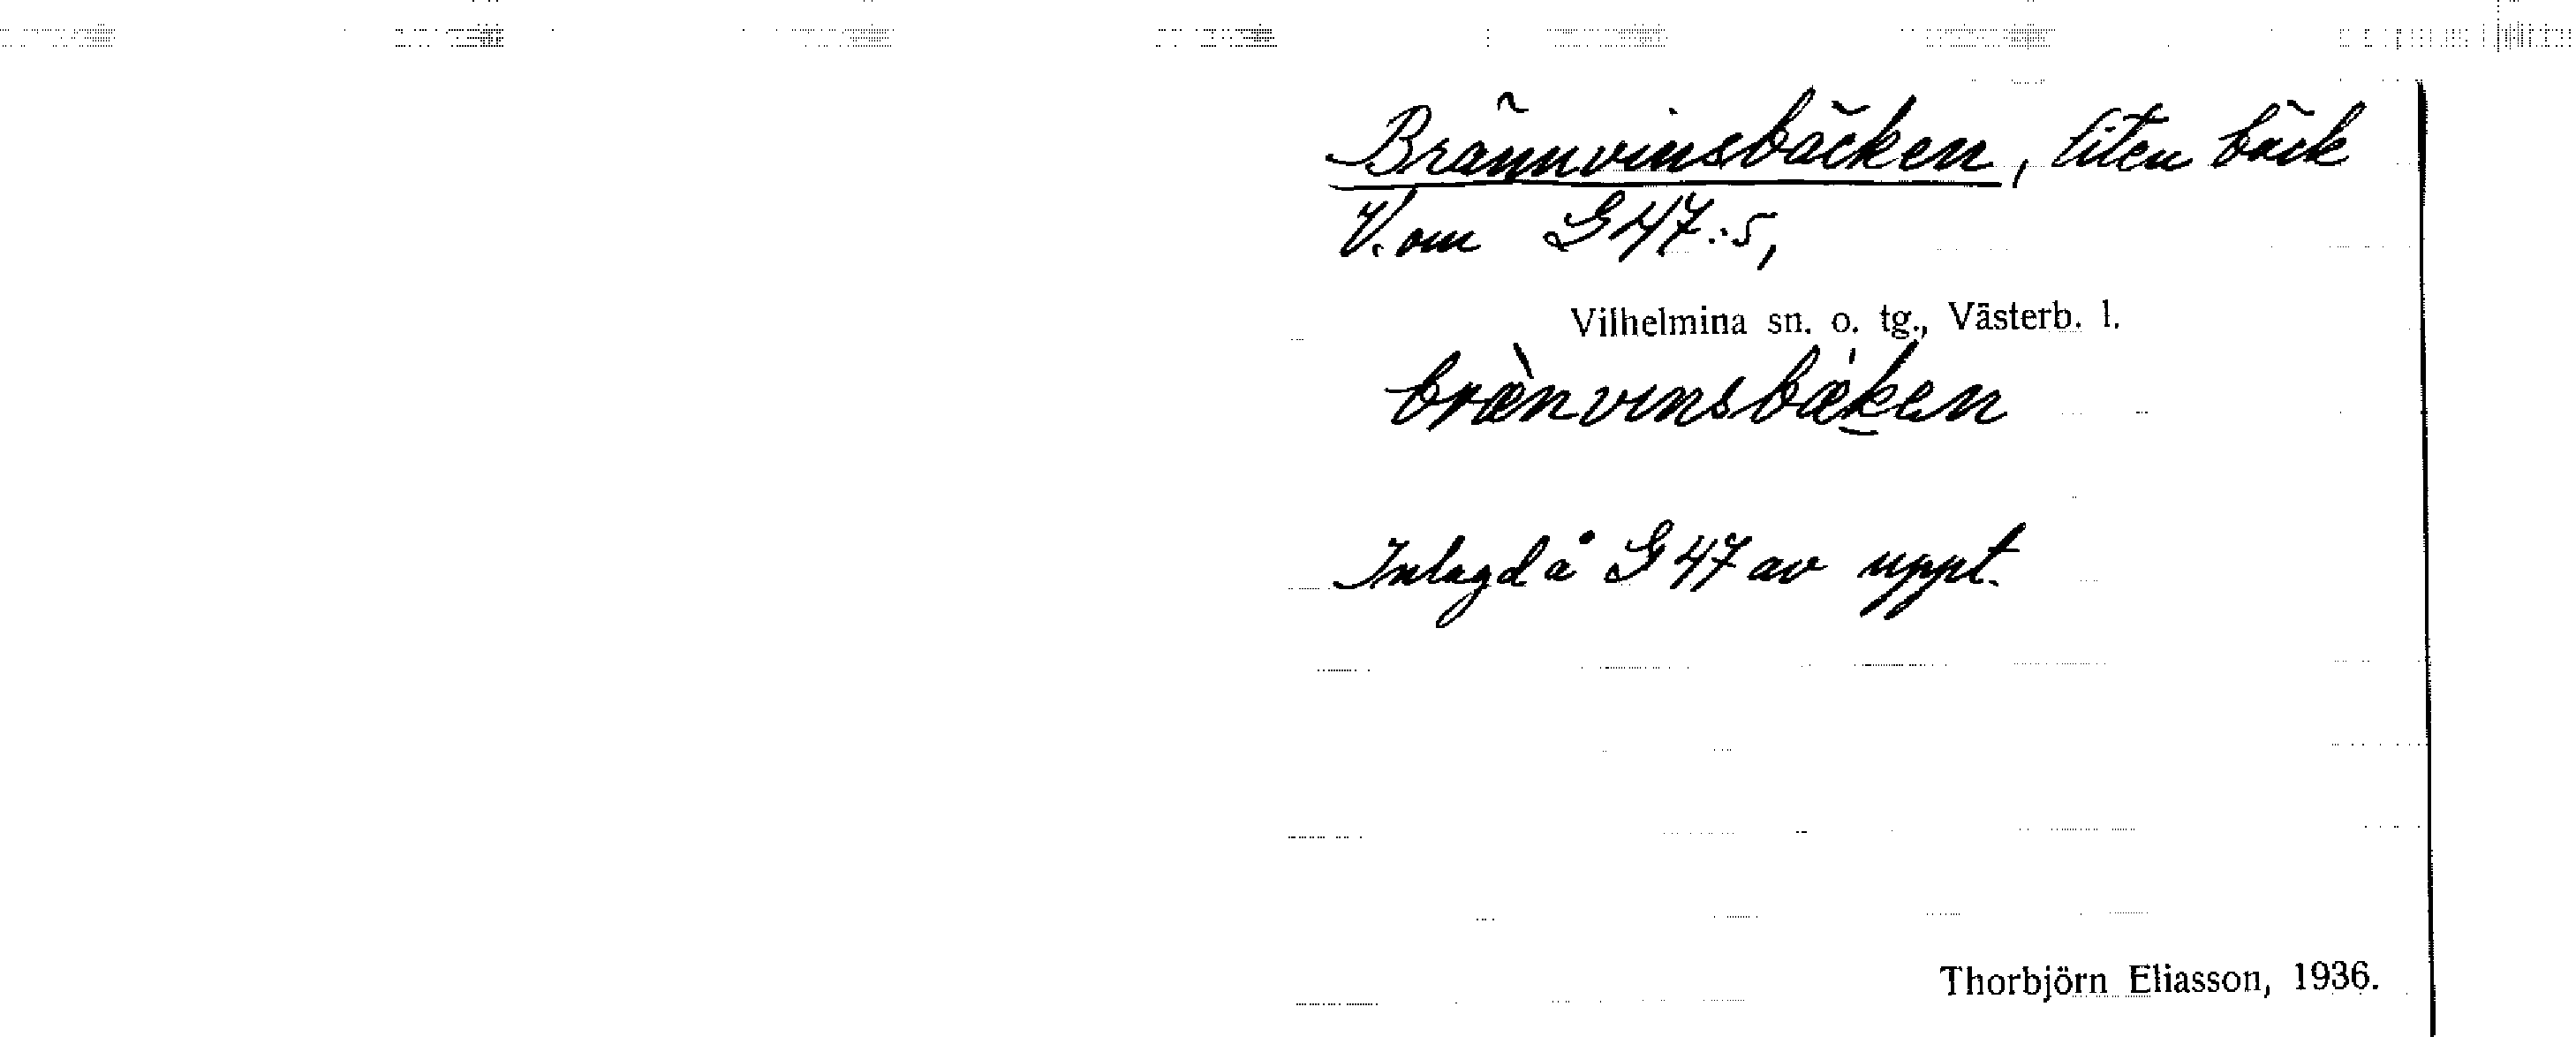 Brännvinsbäcken, liten bäck
V. om G47:5,
Vilhelmina sn. o. tg., Västerb. l.
bræ̀nvinsbæ̍ken
Inlagd å G47 av uppt.
Thorbjörn Eliasson, 1936.